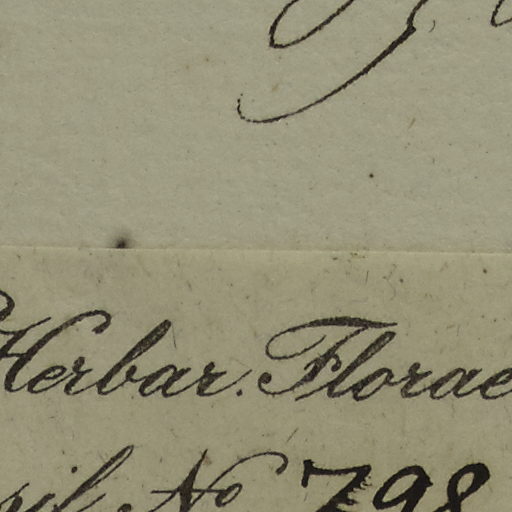 Herbar. Florae
No 798